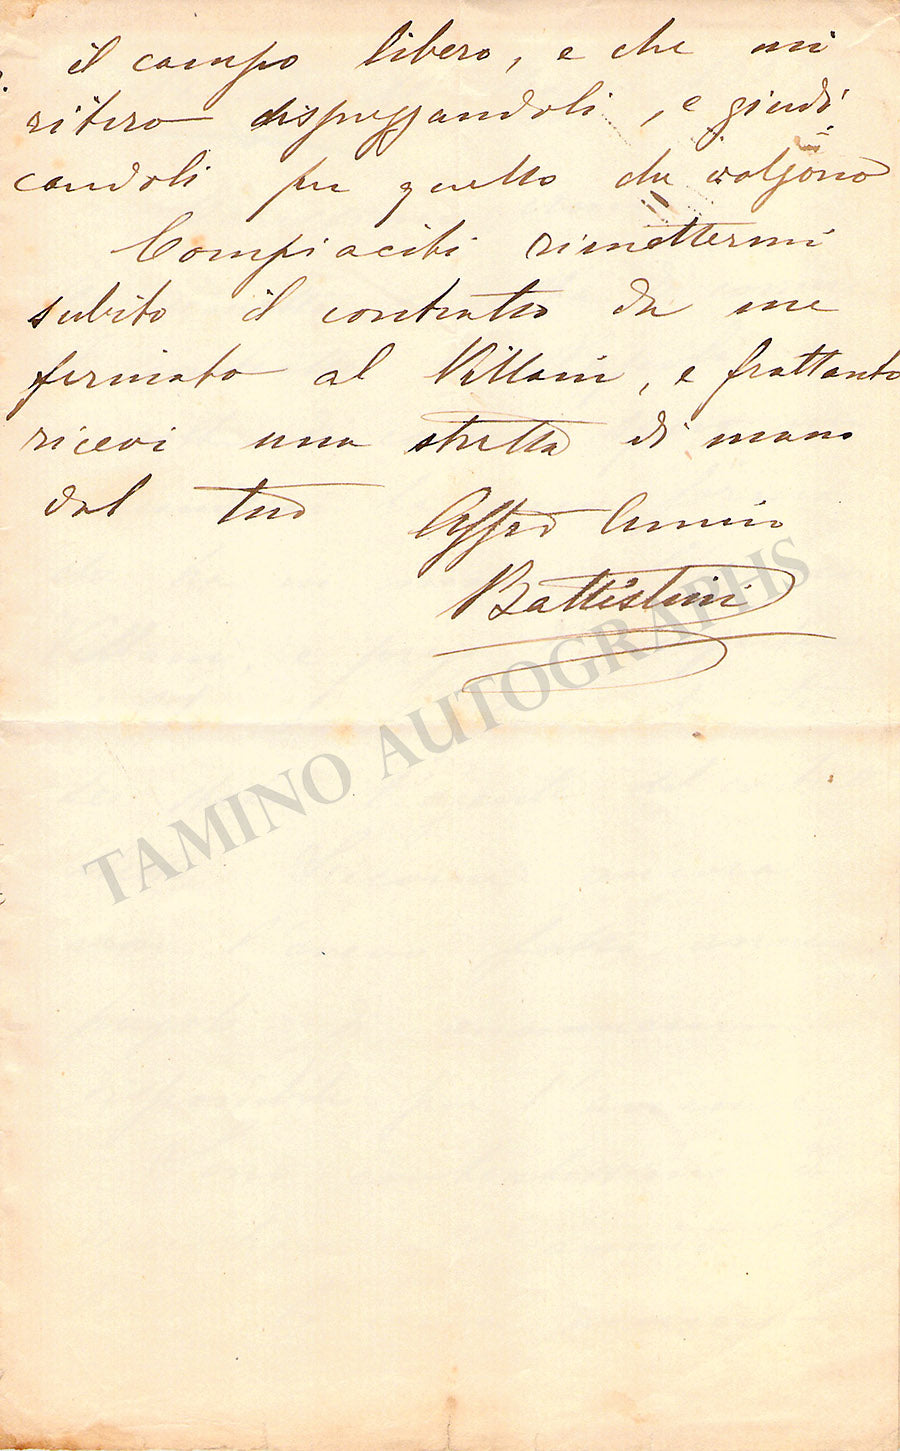 il campo libero, e che mi
ritiro disprezzandoli, e giudi
candoli per quello che valgono
Compiaciti rimettermi
subito il contratto da me
firmato al Villani, e frattanto
ricevi una stretta di mano
dal tuo Affmo Amico
Battistini
TAMINO AUTOGRAPHS